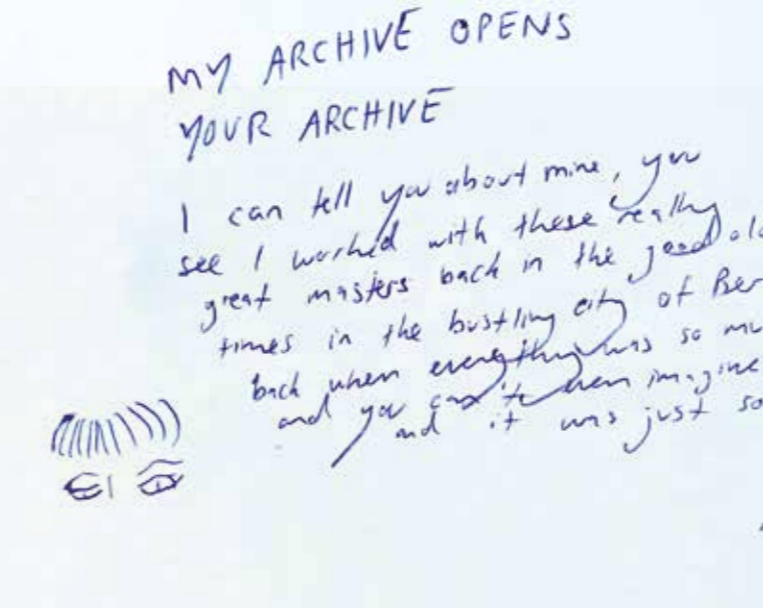 MY ARCHIVE OPENS
YOUR ARCHIVE
I can tell you about mine, you
see I worked with these really
great masters back in the good old
times in the bustling city of Ber
back when everything was so mu
and you can't even imagine
and it was just so